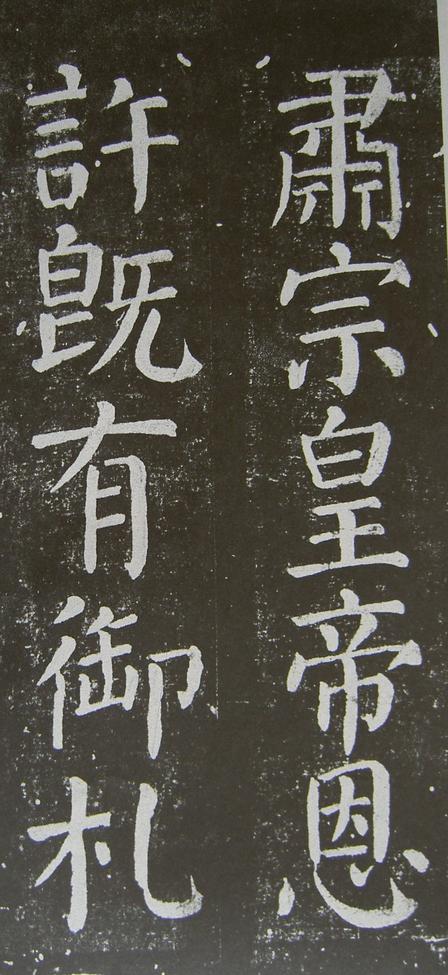 肅宗皇帝恩
許既有御札